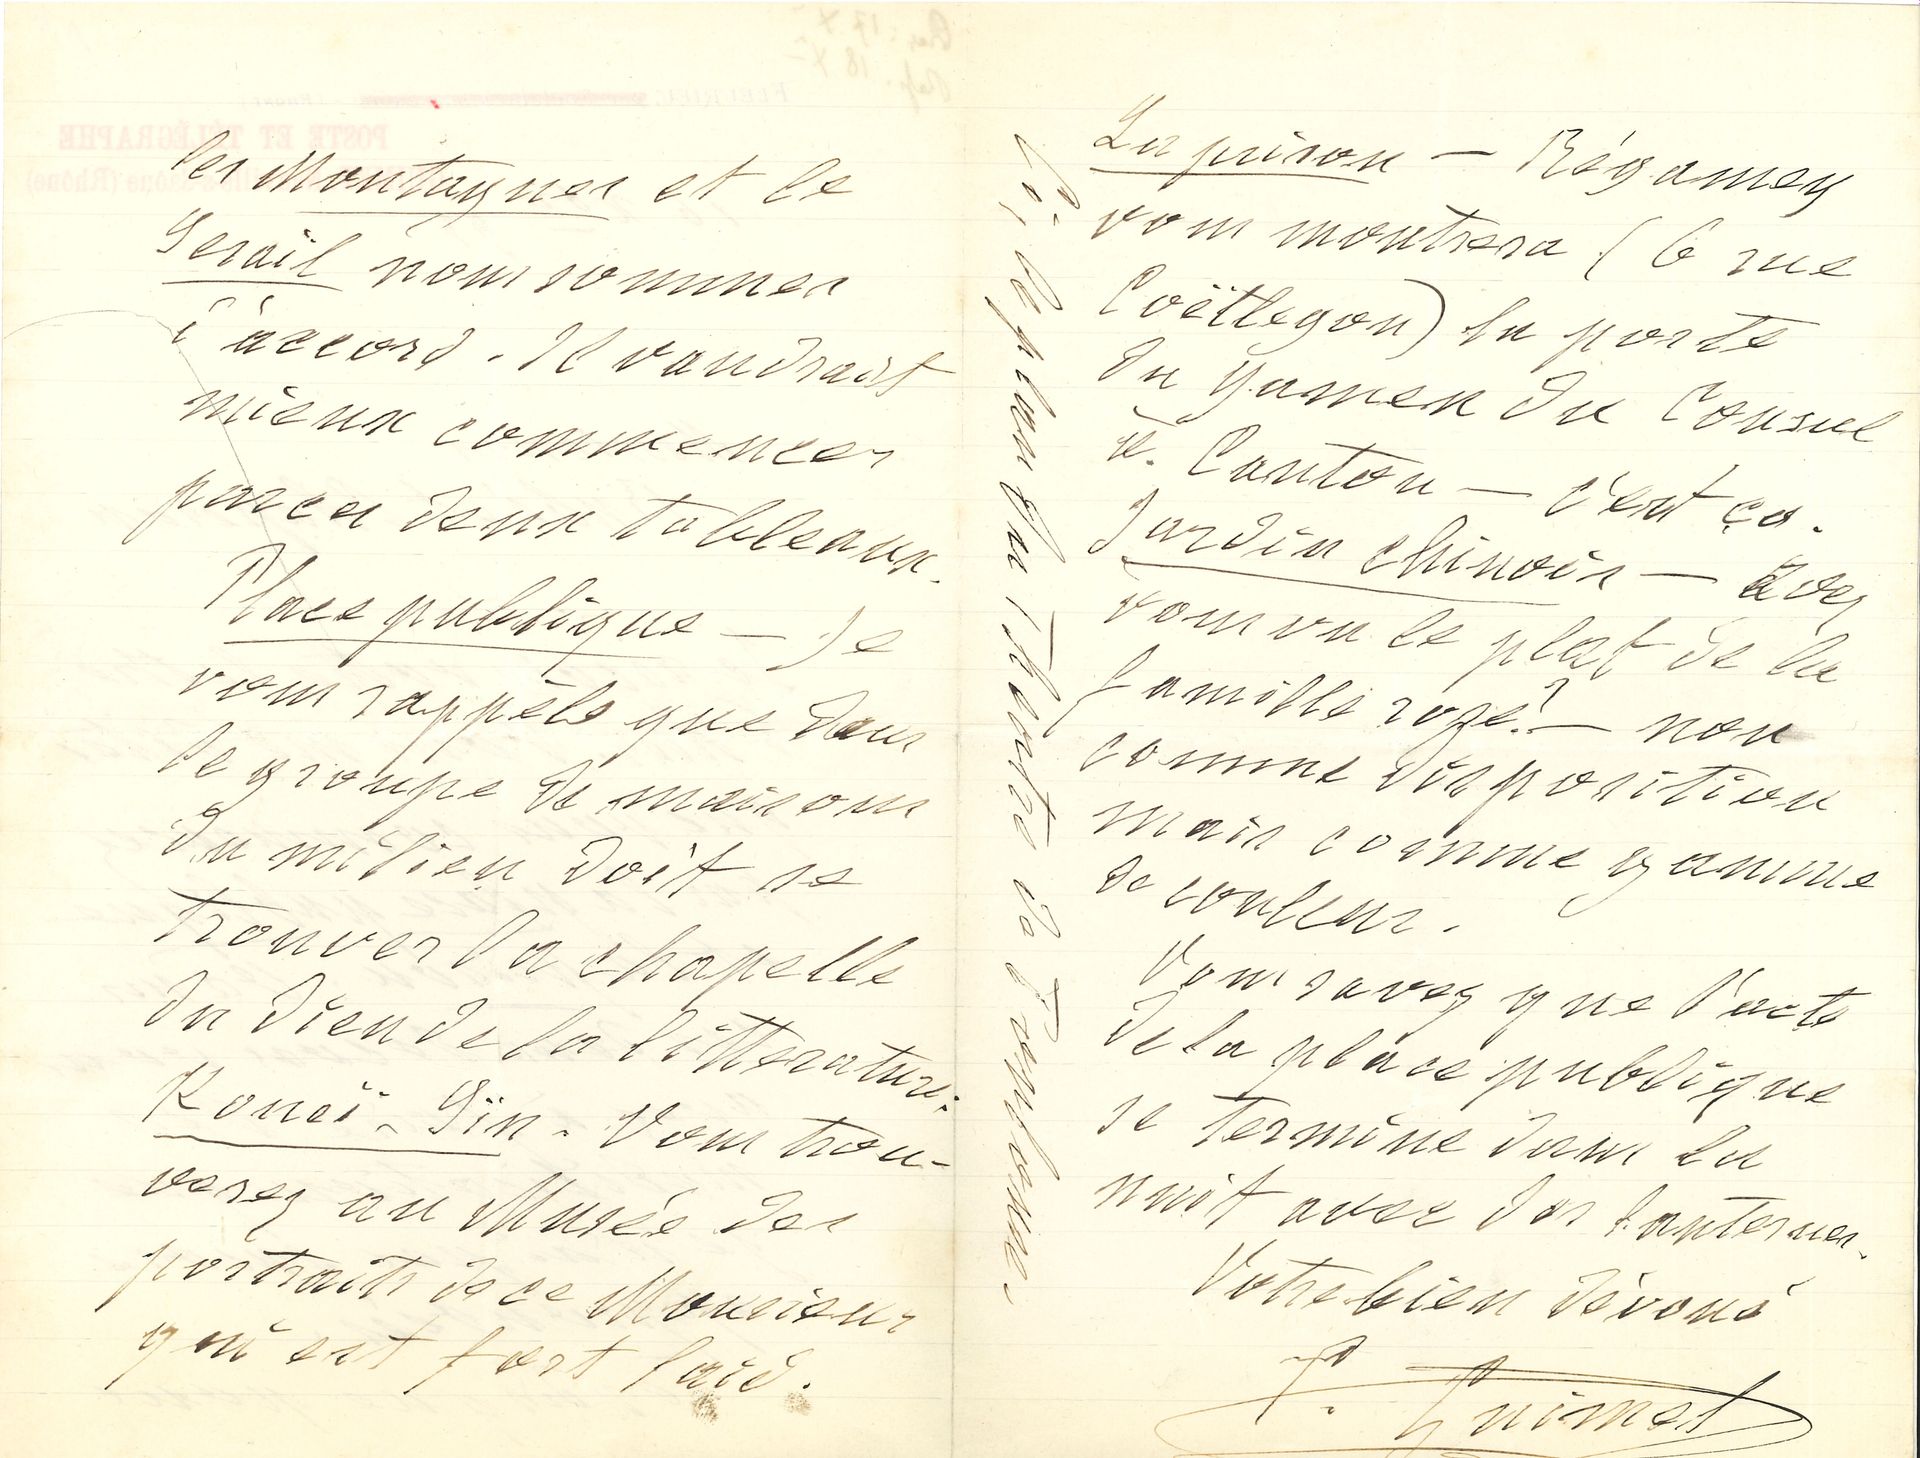 les Montagnes et le
Serail nous sommes
d'accord. Il vaudrait
mieux commencer
par ces deux tableaux.
Place publique — Je
vous rappèle que dans
le groupe de maisons
du milieu doit se
trouver la chapelle
du dieu de la littérature:
Koueï-Sïn. Vous trou-
verez au Musée des
portraits de ce Monsieur
qui est fort laid.
Ci, le plan du théâtre de Toulouse.
La prison — Régamey
vous montrera (6 rue
Coëtlegon) la porte
du Yamen du Consul
de Canton — c'est ça.
Jardin chinois — avez
vous vu le plat de la
famille roze? — non
comme disposition
mais comme gamme
de couleur.
Vous savez que l'acte
de la place publique
se termine dans la
nuit avec des lanternes.
Votre bien dévoué
E. Guimet
POSTE ET TÉLÉGRAPHE
(Rhône)